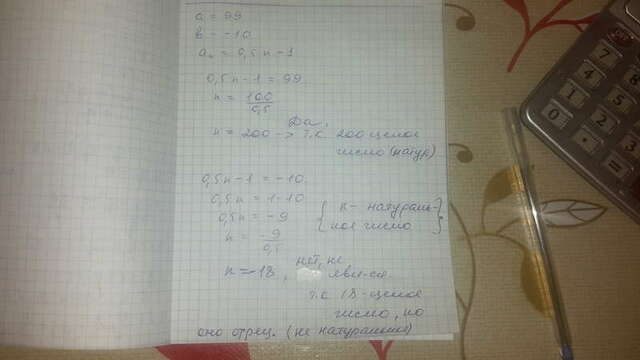 a = 99
b = -10
aₙ = 0,5n-1
0,5n-1 = 99
n = 100/0,5
Да,
n = 200 -> т.к. 200 целое
число (натур)
0,5n-1 = -10
0,5n = 1-10
0,5n = -9
{ n - натураль-
ное число }
n = -9/0,5
n = -18, нет, не
явл-ся.
т.к 18-целое
число, но
оно отриц. (не натуральное)
7
4
5
1
2
3
0
.
=